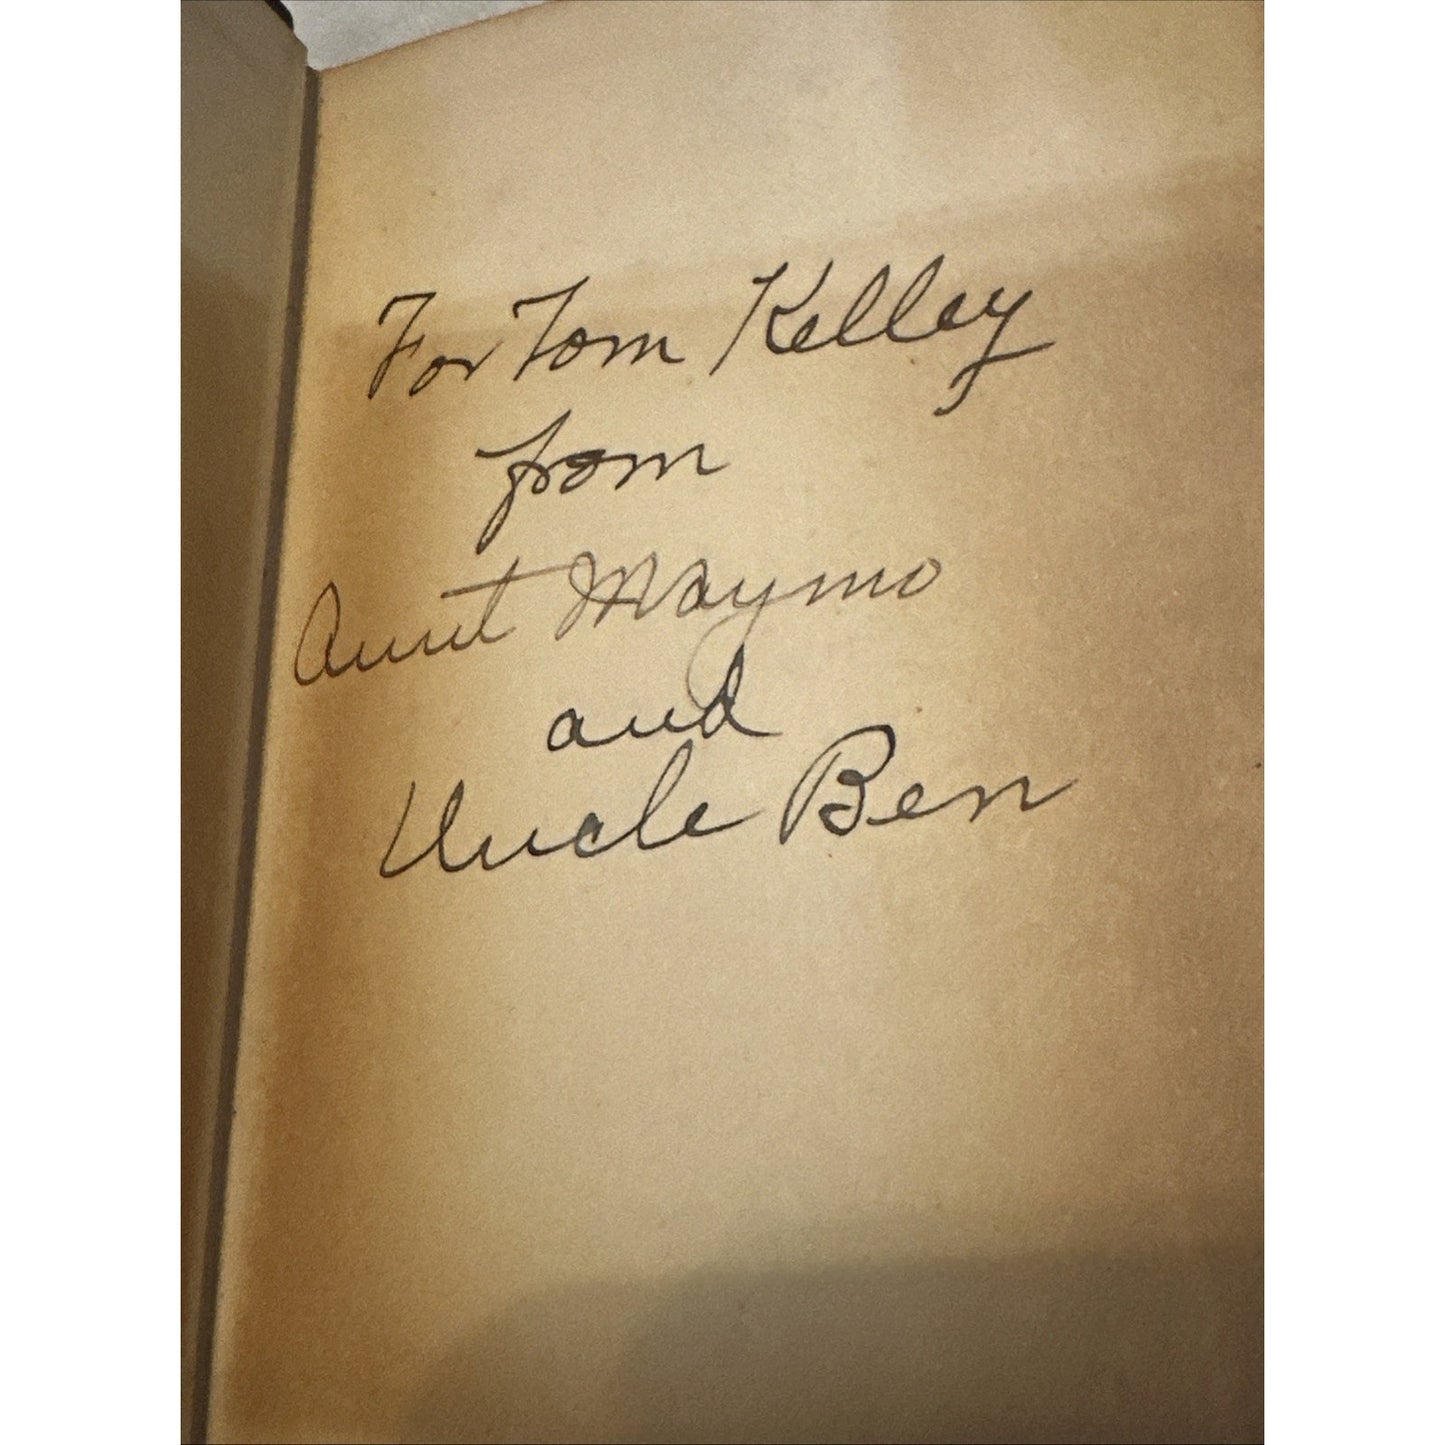 For Tom Kelley
from
Aunt Maymo
and
Uncle Ben